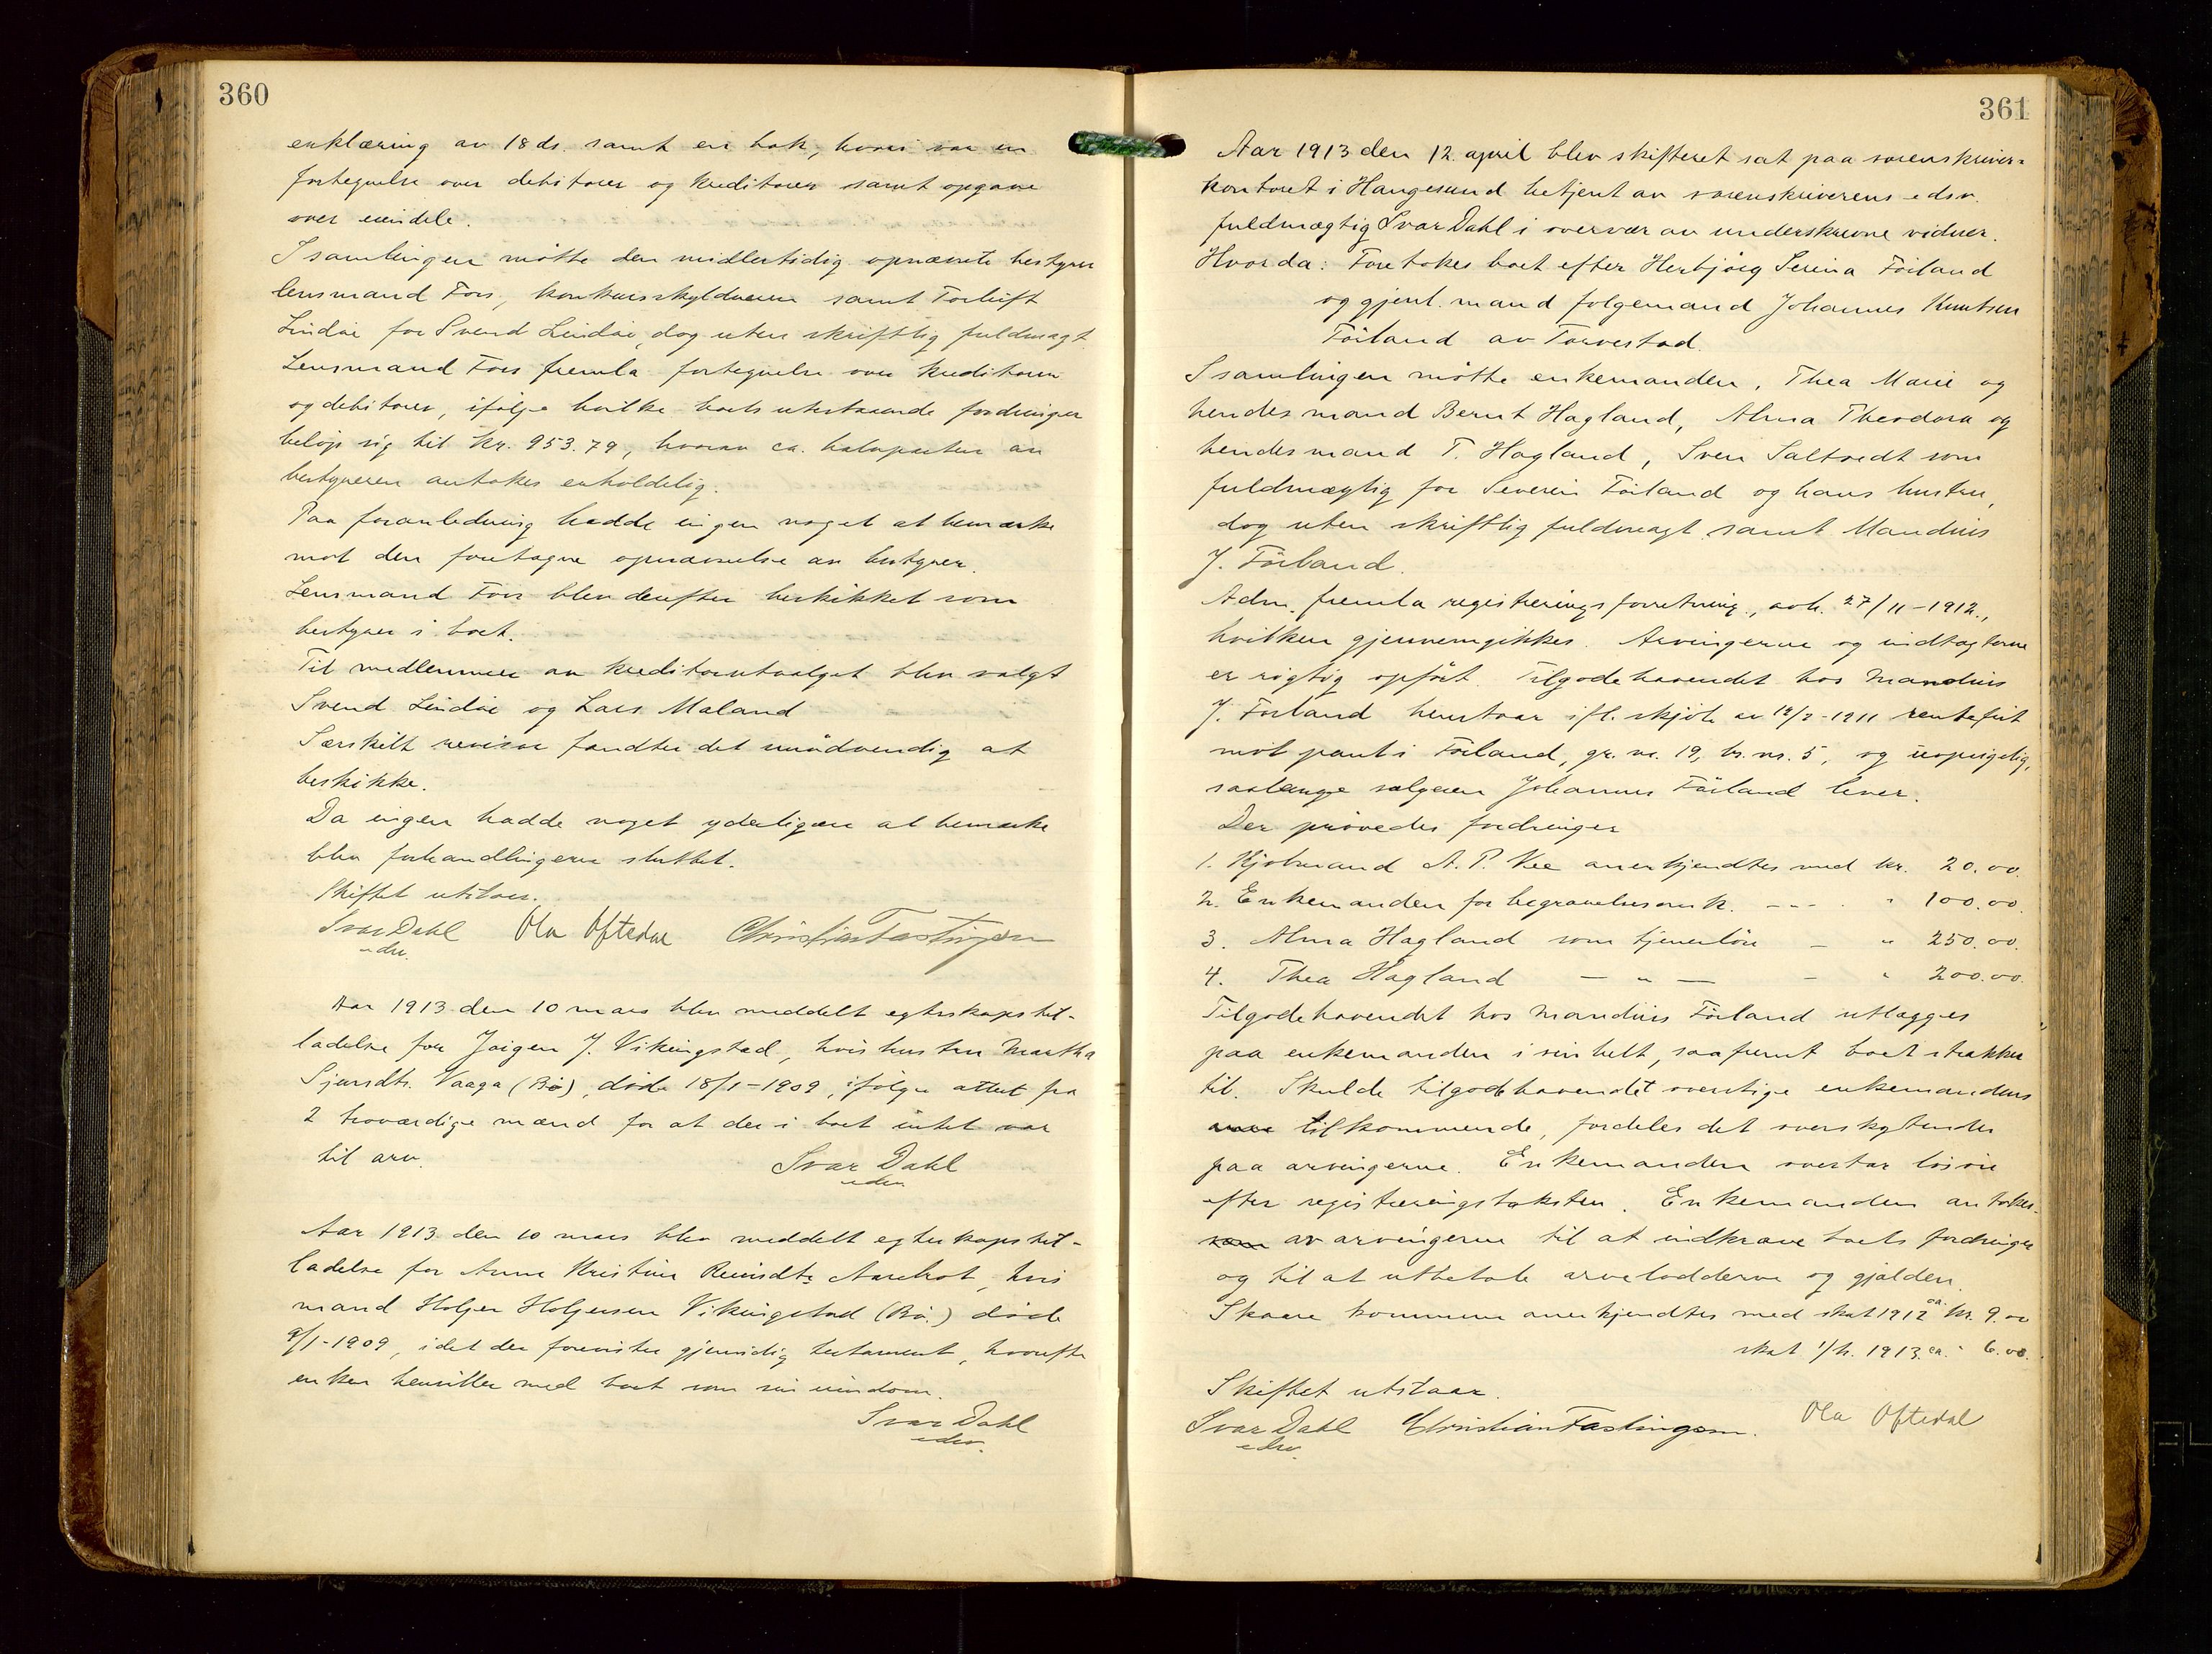 360
erklæring av 18 ds. samt en bok, hvori var en
fortegnelse over debitorer og kreditorer samt opgave
over eiendele.
I samlingen møtte den midlertidig opnævnte bestyrer
lensmand Fors, konkursskyldneren samt Torleif
Lindøe for Svend Lindøe, dog uten skriftlig fuldmagt.
Lensmand Fors fremla fortegnelse over kreditorer
og debitorer, ifølge hvilke boets utestaaende fordringer
beløp sig til kr. 953.79, hvorav ca. halvparten av
bestyreren antokes erholdelig.
Paa foranledning hadde ingen noget at bemerke
mot den foretagne opnævnelse av bestyrer.
Lensmand Fors blev derefter beskikket som
bestyrer i boet.
Til medlemmer av kreditorutvalget blev valgt
Svend Lindøe og Lars Maland
Særskilt revisor fandtes det unødvendig at
beskikke.
Da ingen hadde noget yderligere at bemerke
blev forhandlingerne sluttet.
Skiftet utstaar.
Ivar Dahl Ola Oftedal Christian Fastingsen
edsv.
Aar 1913 den 10 mars blev meddelt egteskapstil-
ladelse for Jørgen J. Vikingstad, hvis hustru Martha
Sjursdtr. Vaaga (Bø), døde 18/1-1909, ifølge attest fra
2 troværdige mænd for at der i boet intet var
til arv.
Ivar Dahl
edsv.
Aar 1913 den 10 mars blev meddelt egteskapstil-
ladelse for Anna Kristine Reinsdtr. hvis
mand Holger Holgersen Vikingstad (Bø.) døde
9/1-1909, idet der forevistes gjensidig testament, hvorefter
enken hensitter med boet som sin eiendom.
Ivar Dahl
edsv.
361
Aar 1913 den 12. april blev skifteret sat paa sorenskriver-
kontoret i Haugesund betjent av sorenskriverens edsv.
fuldmægtig Ivar Dahl i overvær av underskrevne vidner.
Hvorda: Foretokes boet efter Herbjørg Serina Førland
og gjenl. mand folgemand Johannes Knutsen
Førland av Torvestad.
I samlingen møtte enkemanden, Thea Marie og
hendes mand Bernt Hagland, Alma Theodora og
hendes mand T. Hagland, Sven Saltvedt som
fuldmægtig for Severin Førland og hans hustru,
dog uten skriftlig fuldmagt samt Mandius
J. Førland.
Adm. fremla registreringsforretning, avh. 27/11-1912,
hvilken gjennemgikkes. Arvingerne og indtægterne
er rigtig opført. Tilgodehavendet hos Mandius
J. Førland henstaar ifl. skjøte av 12/7-1911 rentefrit
mot pant i Førland, gr. nr. 19, br. nr. 5, og uopsigelig,
saalenge sælgeren Johannes Førland lever.
Der prøvedes fordringer
1. Hjolmand A. P. Vee anerkjendtes med kr. 20.00.
2. Enkemanden for begravelsesomk. - - - " 100.00.
3. Alma Hagland som tjenerløn - " 250.00.
4. Thea Hagland — " — - " 200.00.
Tilgodehavendet hos Mandius Førland utlægges
paa enkemanden i sin helt, saafremt boet strækker
til. Skulde tilgodehavendet overstige enkemandens
tilkommende, fordeles det overskytende
paa arvingerne. Enkemanden overtar løsøre
efter registreringstaksten. Enkemanden antokes
som av arvingerne til at indkræve boets fordringer
og til at utbetale arvelodderne og gjælden.
Skaare kommune anerkjendtes med skat 1912 ca. kr. 9.00
skat 1/h. 1913 ca. " 6.00.
Skiftet utstaar.
Ivar Dahl Christian Fastingsen. Ola Oftedal
edsv.